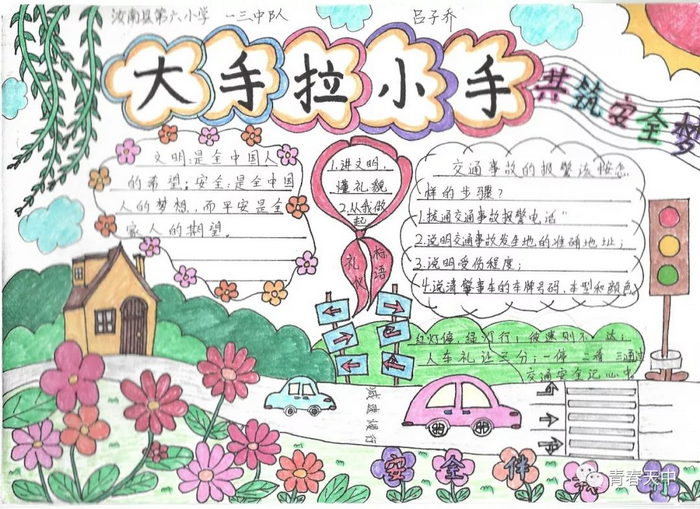 汝南县第六小学 一三中队 吕子乔
大手拉小手
共筑安全梦
文明:是全中国人
的希望;安全:是全中国
人的梦想,而平安是全
家人的期望。
1.讲文明,
懂礼貌
2.从我做
起
标语
礼仪
交通事故的报警该按怎
样的步骤?
1.拨通交通事故报警电话"
2.说明交通事故发生地的准确地址;
3.说明受伤程度;
4.说清肇事车的车牌号码,车型和颜色
红灯停 绿灯行;欲速则不达;
人车礼让三分;一停 二看 三通过
交通安全记心中
减速慢行
安全伴
青春天中